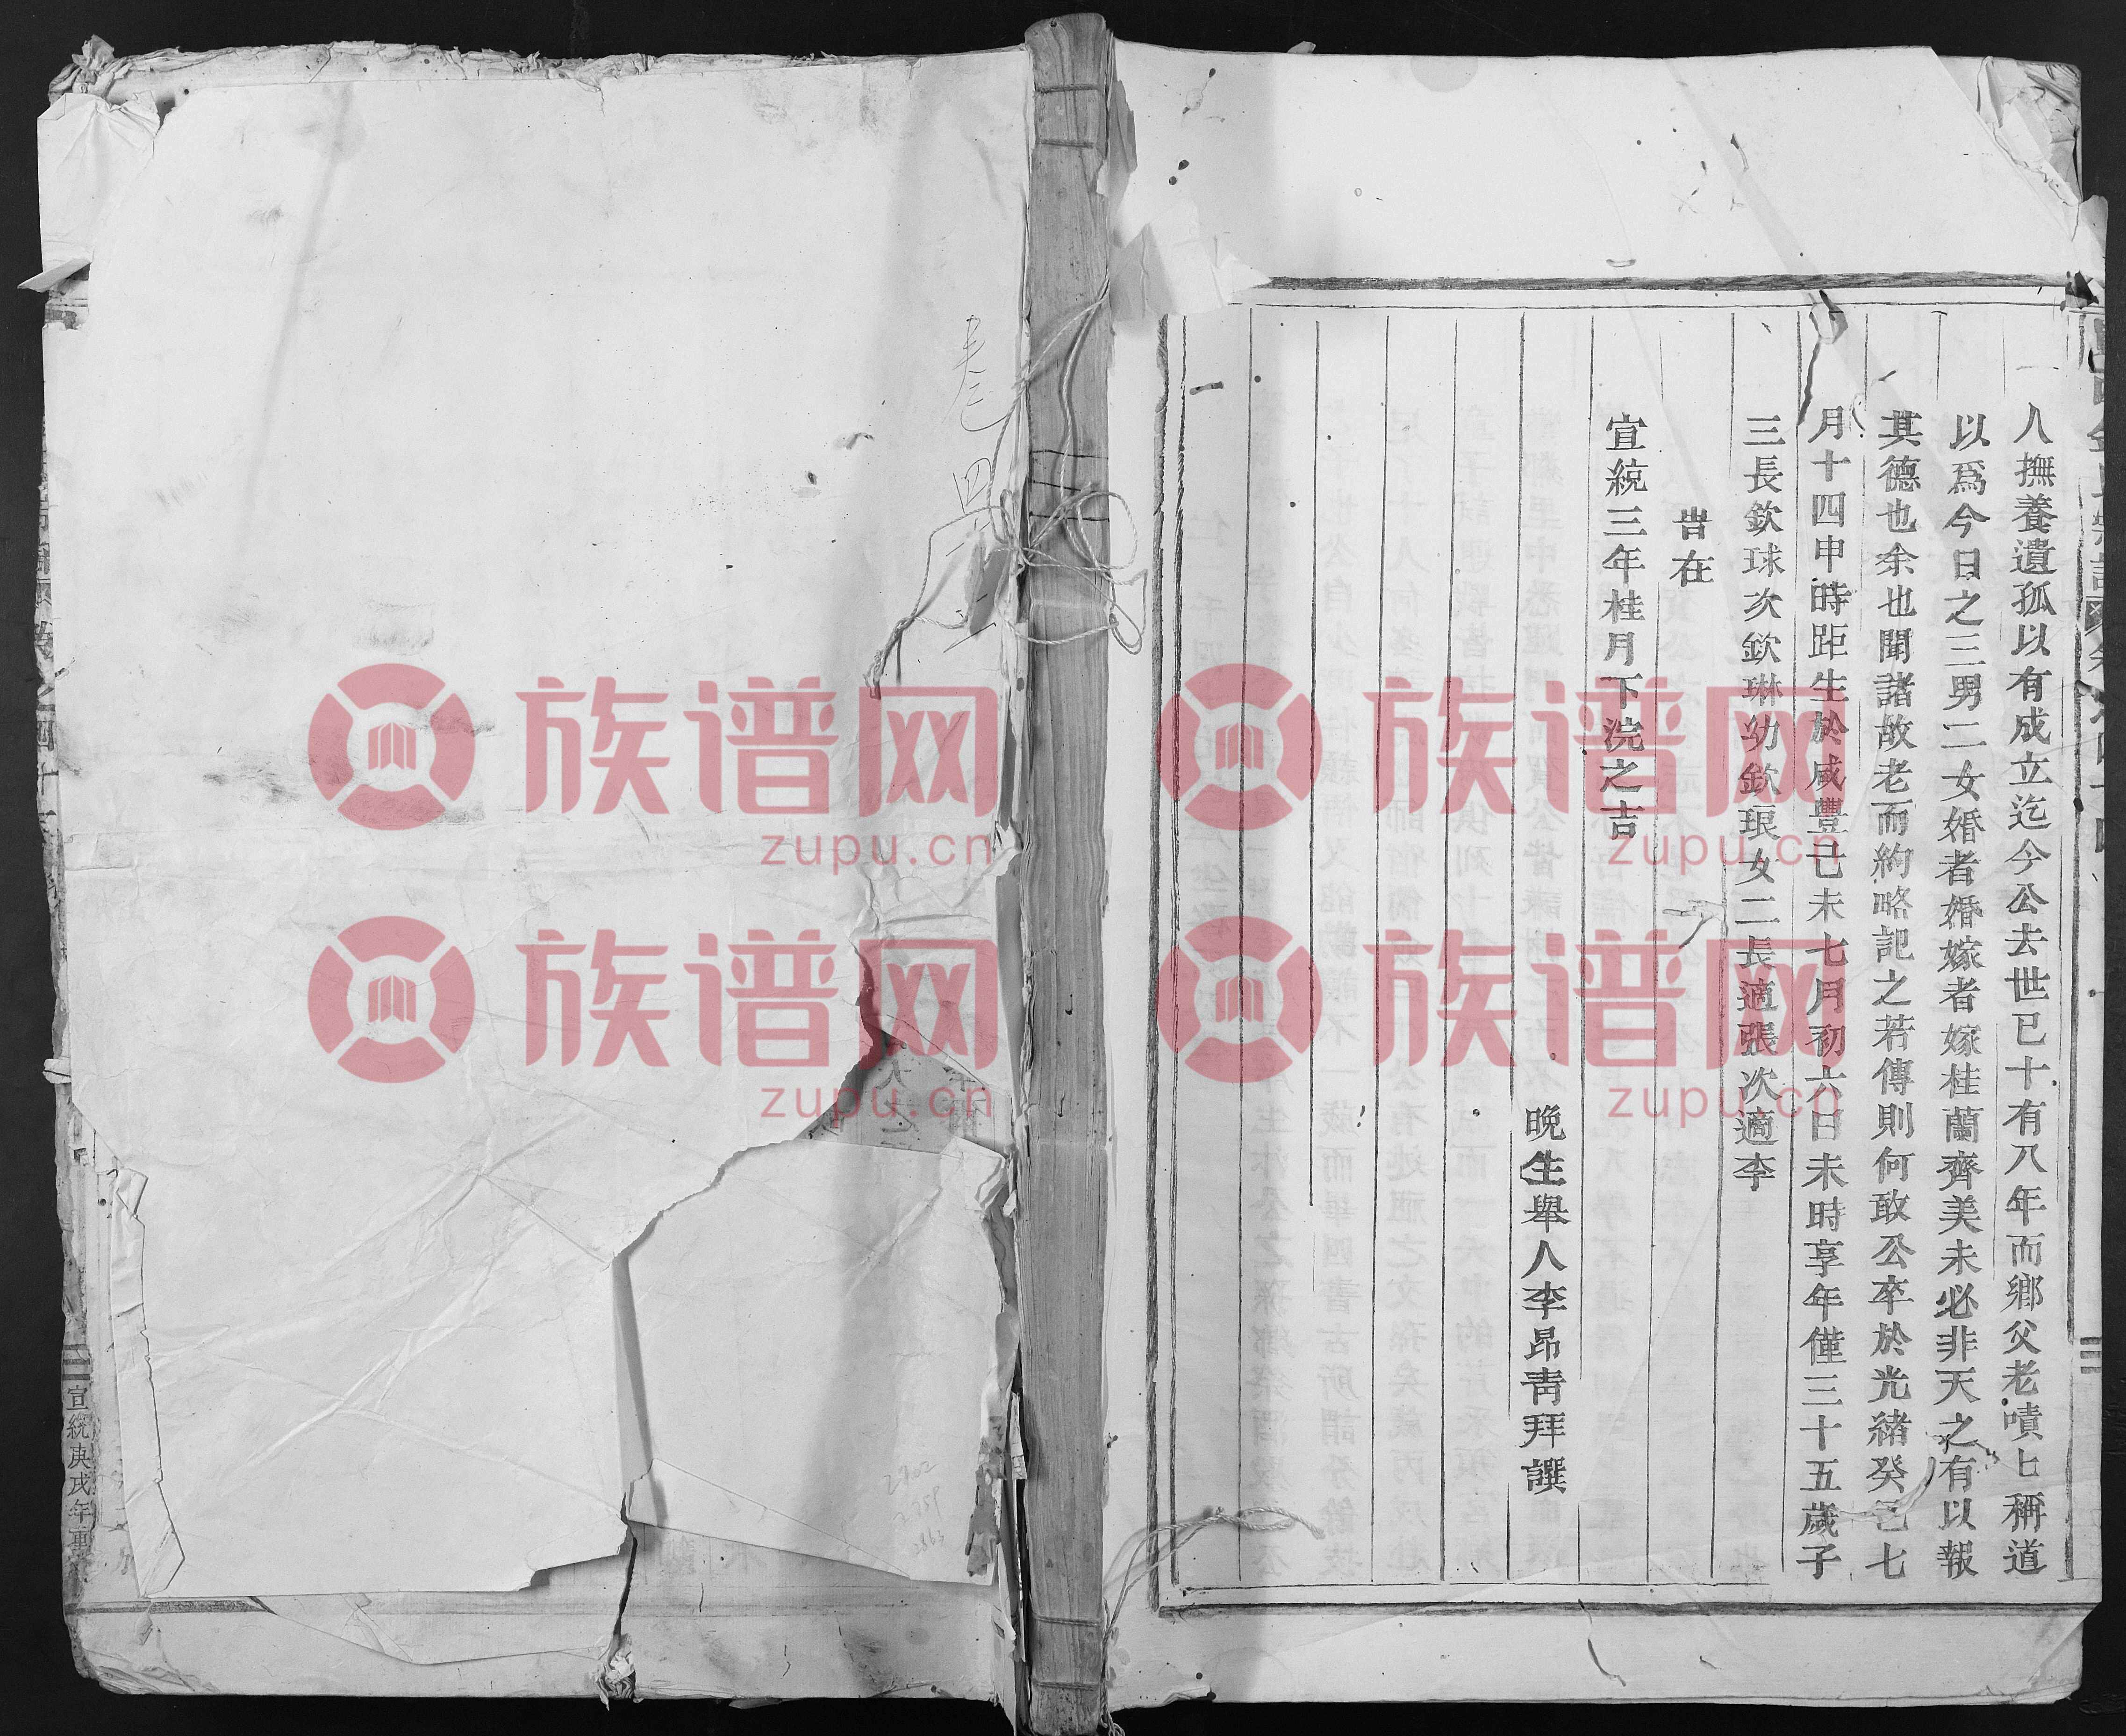 人撫養遺孤以有成立迄今公去世已十有八年而鄉父老嘖匕稱道
以爲今日之三男二女婚者婚嫁者嫁桂蘭齊美未必非天之有以報
其德也余也聞諸故老而約略記之若傳則何敢公卒於光緒癸巳七
月十四申時距生於咸豐己未七月初六日未時享年僅三十五歲子
三長欽球次欽琳幼欽琅女二長適張次適李
旹在
宣統三年桂月下浣之吉
晚生舉人李昂青拜譔
卷
四
宣統庚戌年重
族谱网
zupu.cn
族谱网
zupu.cn
族谱网
zupu.cn
族谱网
zupu.cn